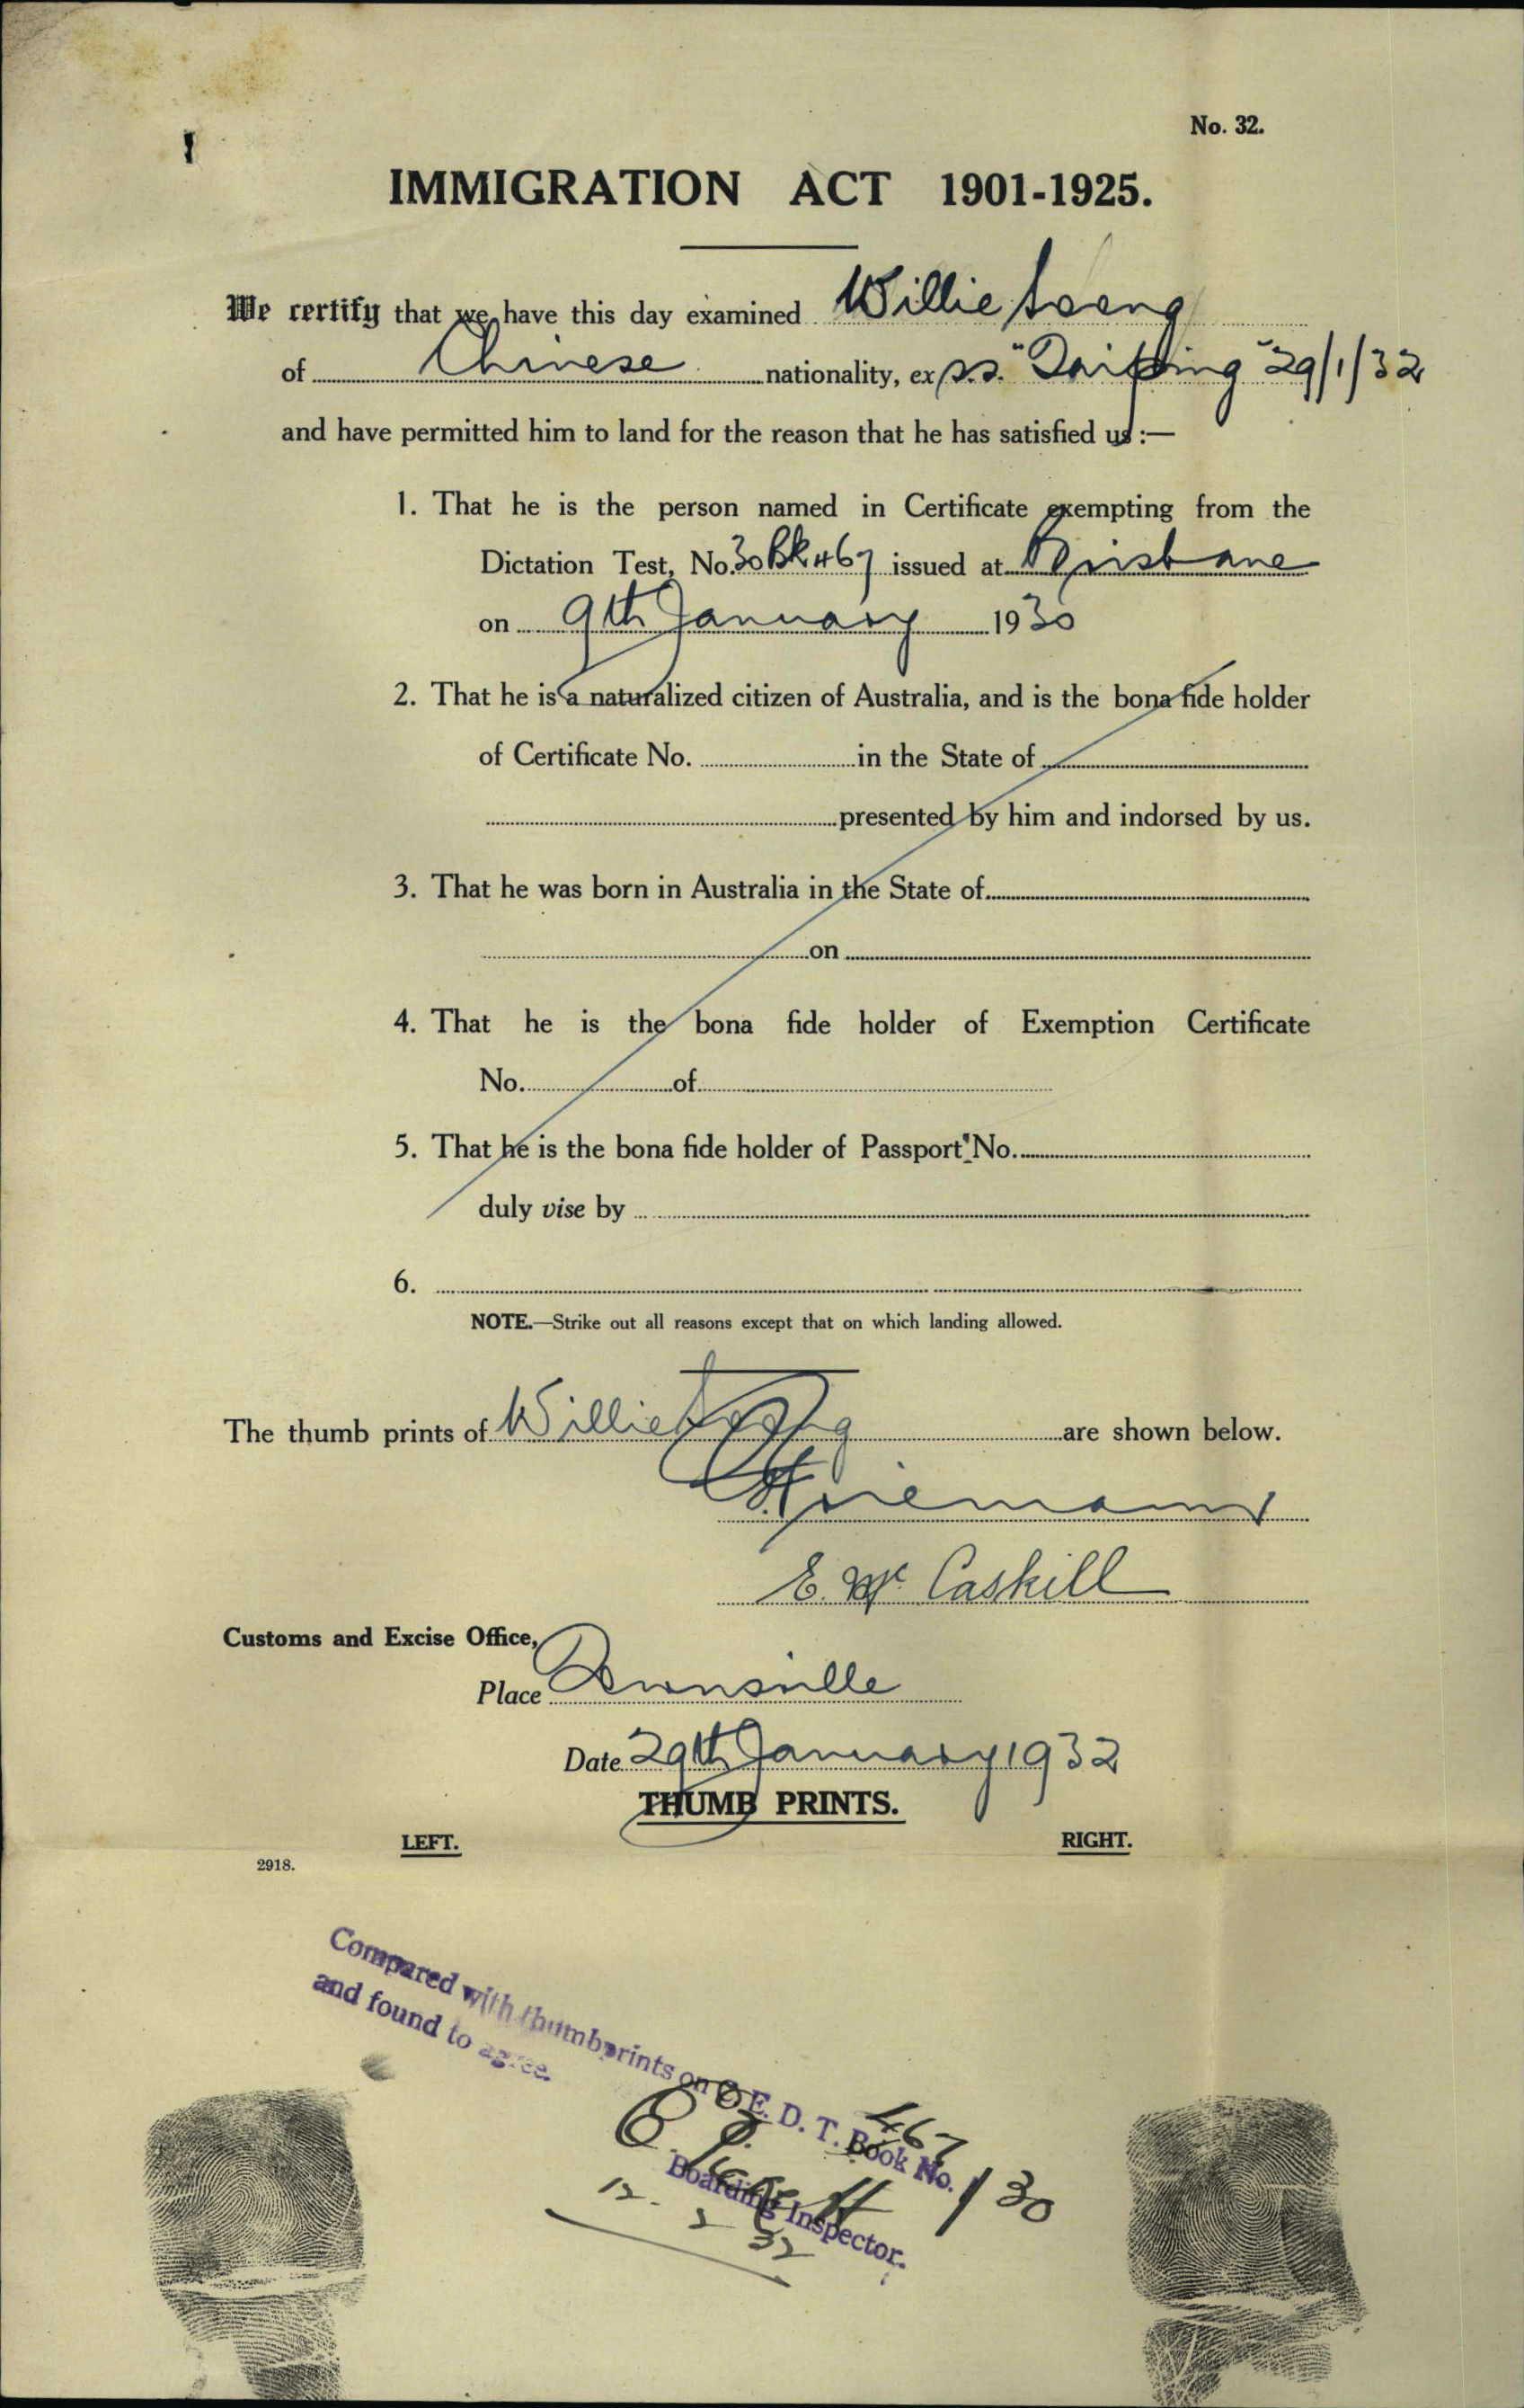 No. 32.
IMMIGRATION ACT 1901-1925.
We certify that we have this day examined Willie
of Chinese nationality, ex s.s. "Taiping" 29/1/32
and have permitted him to land for the reason that he has satisfied us :—
1. That he is the person named in Certificate exempting from the
Dictation Test, No. 30Bk467 issued at Brisbane
on 9th January 1930
2. That he is a naturalized citizen of Australia, and is the bona fide holder
of Certificate No. in the State of
presented by him and indorsed by us.
3. That he was born in Australia in the State of
on
4. That he is the bona fide holder of Exemption Certificate
No. of
5. That he is the bona fide holder of Passport No.
duly vise by
6.
NOTE.—Strike out all reasons except that on which landing allowed.
The thumb prints of Willie are shown below.
E. Mc Caskill
Customs and Excise Office,
Place Townsville
Date 29th January 1932
THUMB PRINTS.
LEFT. RIGHT.
2918.
Compared with thumbprints on C.E.D.T. Book No. 467/30
and found to agree.
Boarding Inspector.